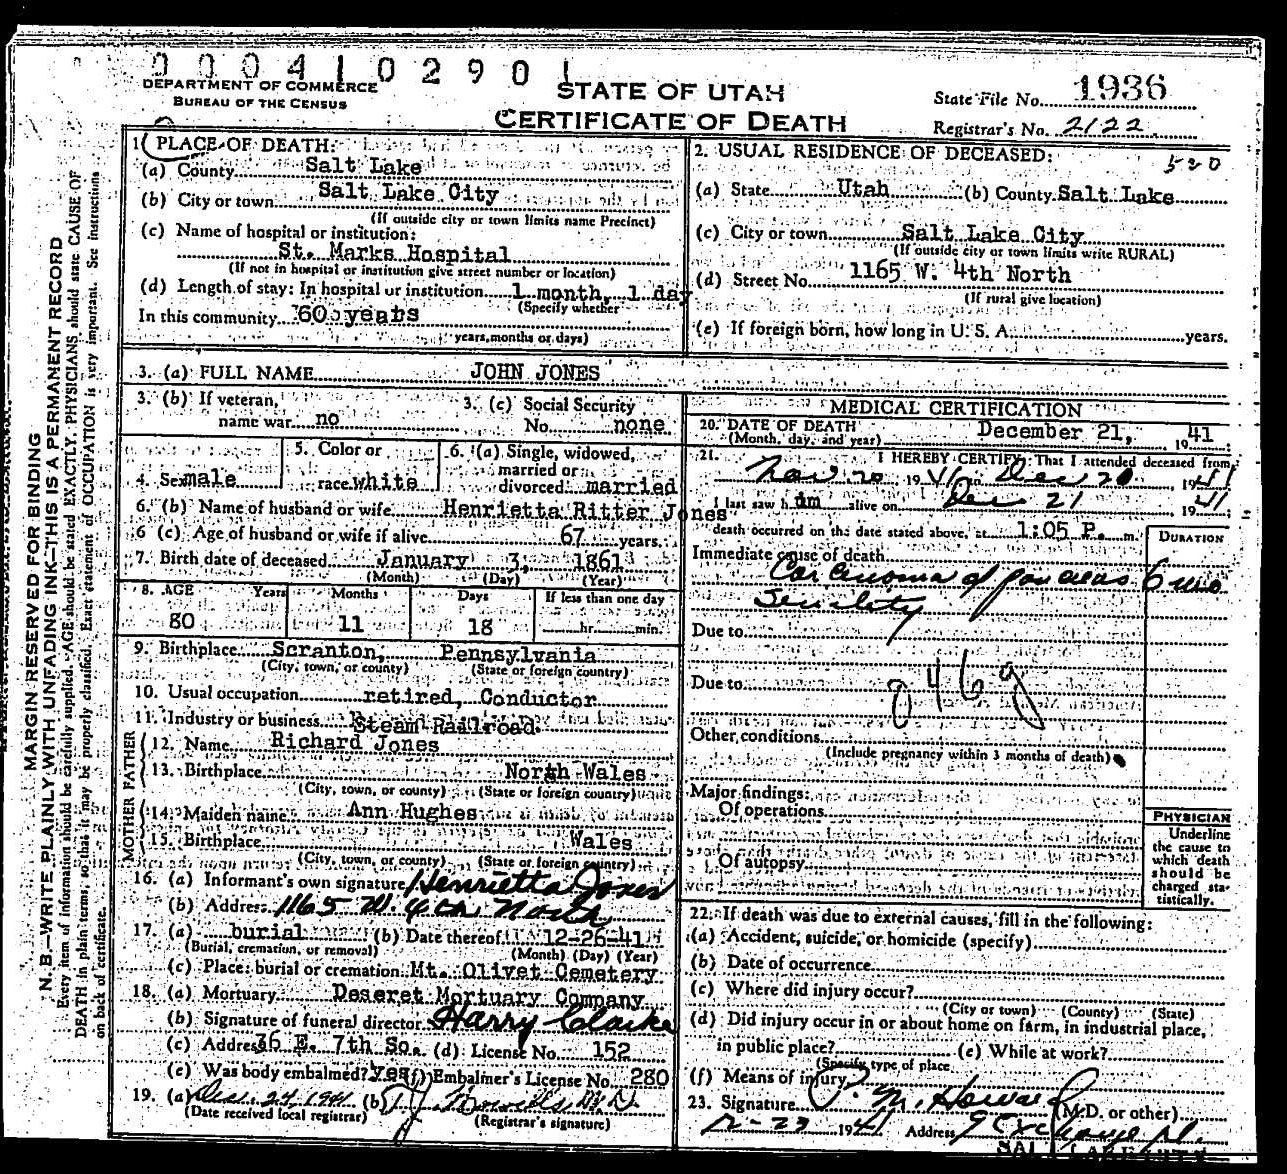 0004102901
DEPARTMENT OF COMMERCE
BUREAU OF THE CENSUS
STATE OF UTAH
CERTIFICATE OF DEATH
State File No. 1936
Registrar's No. 2122
MARGIN RESERVED FOR BINDING
N. B.—WRITE PLAINLY WITH UNFADING INK—THIS IS A PERMANENT RECORD
Every item of information should be carefully supplied. AGE should be stated EXACTLY. PHYSICIANS should state CAUSE OF
DEATH in plain terms, so that it may be properly classified. Exact statement of OCCUPATION is very important. See instructions
on back of certificate.
1. PLACE OF DEATH:
(a) County Salt Lake
(b) City or town Salt Lake City
(If outside city or town limits name Precinct)
(c) Name of hospital or institution:
St. Marks Hospital
(If not in hospital or institution give street number or location)
(d) Length of stay: In hospital or institution 1 month, 1 day
(Specify whether
In this community 60 years
years, months or days)
2. USUAL RESIDENCE OF DECEASED:
520
(a) State Utah (b) County Salt Lake
(c) City or town Salt Lake City
(If outside city or town limits write RURAL)
(d) Street No. 1165 W. 4th North
(If rural give location)
(e) If foreign born, how long in U. S. A. years.
3. (a) FULL NAME JOHN JONES
3. (b) If veteran,
name war no
3. (c) Social Security
No. none
4. Sex male
5. Color or
race white
6. (a) Single, widowed,
married or
divorced married
6. (b) Name of husband or wife Henrietta Ritter Jones
6 (c) Age of husband or wife if alive 67 years.
7. Birth date of deceased January 3, 1861
(Month) (Day) (Year)
8. AGE Years Months Days If less than one day
80 11 18 hr. min.
9. Birthplace Scranton, Pennsylvania
(City, town, or county) (State or foreign country)
10. Usual occupation retired, Conductor
11. Industry or business Steam Railroad
FATHER
12. Name Richard Jones
13. Birthplace North Wales
(City, town, or county) (State or foreign country)
MOTHER
14. Maiden name Ann Hughes
15. Birthplace Wales
(City, town, or county) (State or foreign country)
16. (a) Informant's own signature Henrietta Jones
(b) Address 1165 W. 4th North
17. (a) burial (b) Date thereof 12-26-41
(Burial, cremation, or removal) (Month) (Day) (Year)
(c) Place: burial or cremation Mt. Olivet Cemetery
18. (a) Mortuary Deseret Mortuary Company
(b) Signature of funeral director Harry Clarke
(c) Address 36 E. 7th So. (d) License No. 152
(e) Was body embalmed? yes (f) Embalmer's License No. 280
19. (a) Dec. 24 1941 (b)
(Date received local registrar) (Registrar's signature)
MEDICAL CERTIFICATION
20. DATE OF DEATH
(Month, day, and year) December 21, 1941
21. I HEREBY CERTIFY, That I attended deceased from
Nov 20 1941 to Dec 20 1941
I last saw him alive on Dec 21 1941
death occurred on the date stated above, at 1:05 P. m.
DURATION
Immediate cause of death
Carcinoma of pancreas 6 mo
Senility
Due to
Due to
046g
Other conditions
(Include pregnancy within 3 months of death)
Major findings:
Of operations
Of autopsy
PHYSICIAN
Underline
the cause to
which death
should be
charged sta-
tistically.
22. If death was due to external causes, fill in the following:
(a) Accident, suicide, or homicide (specify)
(b) Date of occurrence
(c) Where did injury occur?
(City or town) (County) (State)
(d) Did injury occur in or about home on farm, in industrial place,
in public place? (e) While at work?
(Specify type of place
(f) Means of injury
23. Signature (M.D. or other)
12-23 1941 Address 9 Exchange Pl.